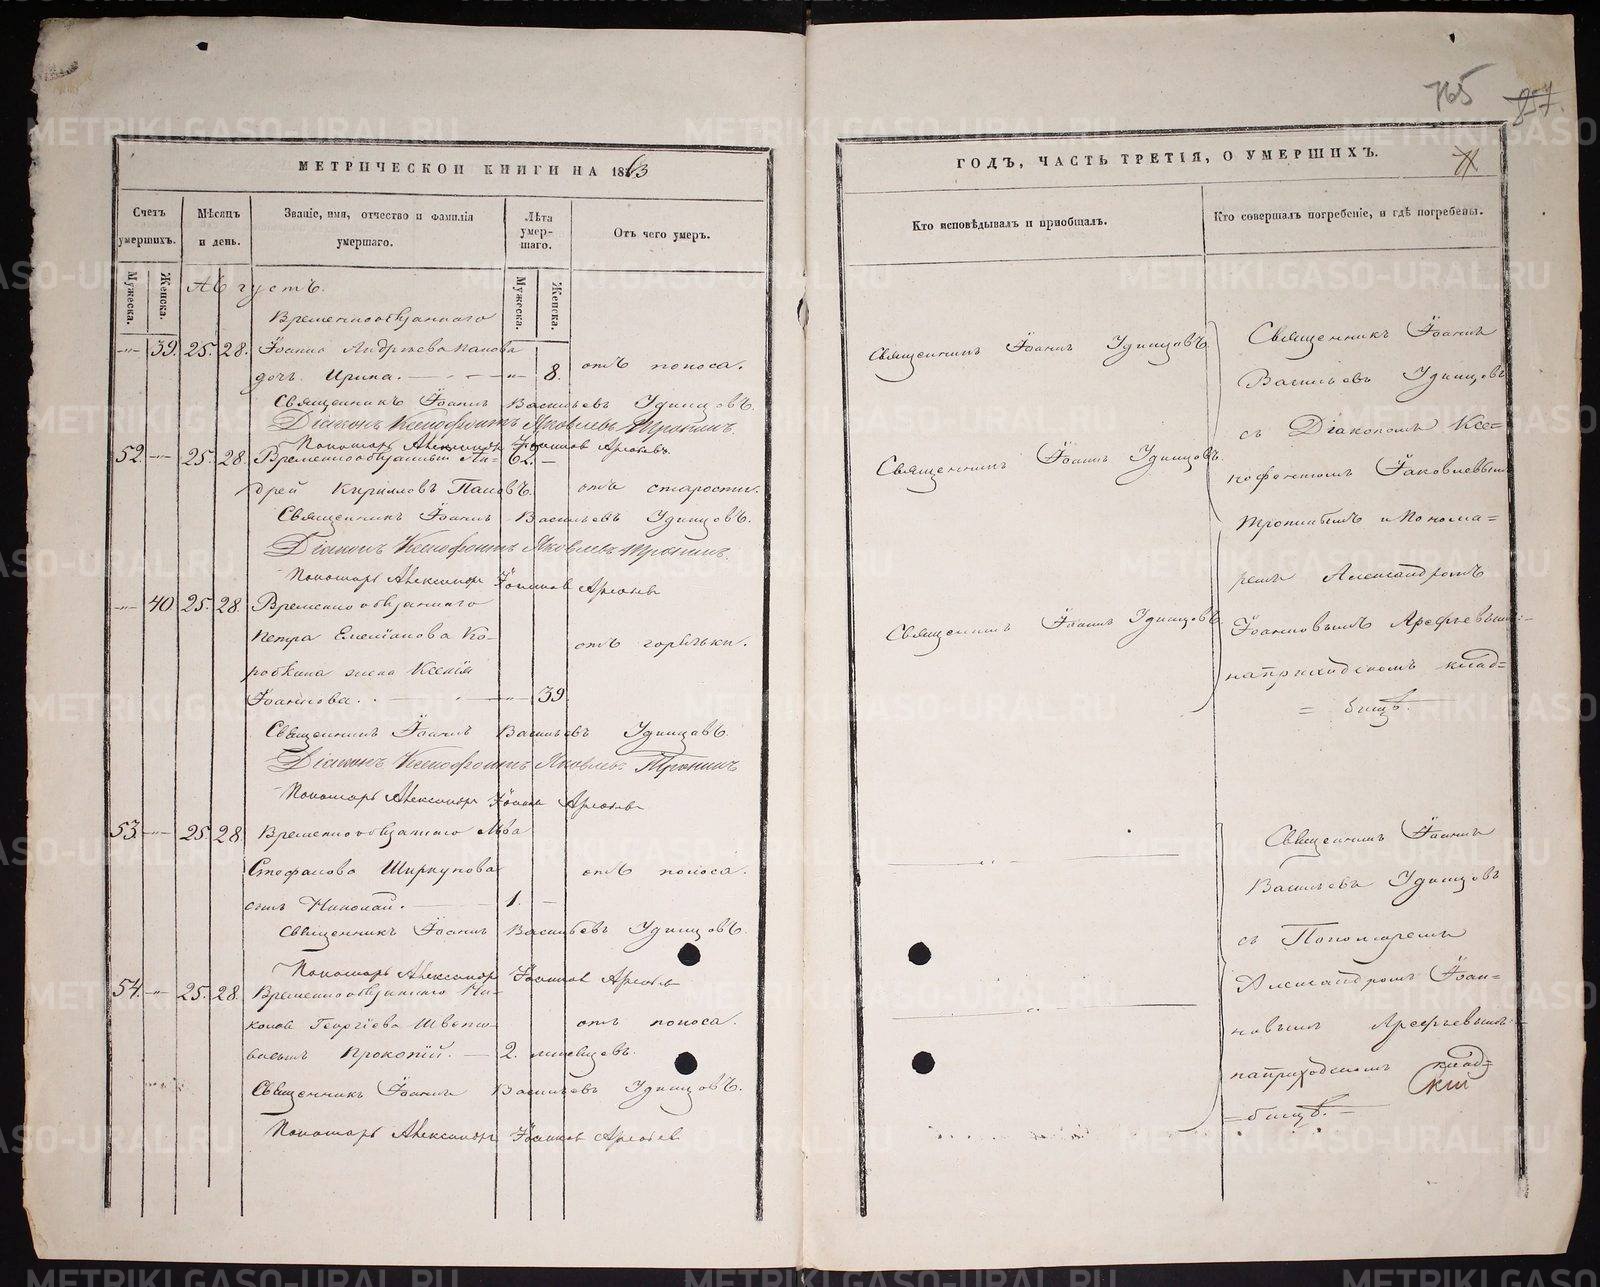 765 857
МЕТРИЧЕСКОЙ КНИГИ НА 1863
Счетъ умершихъ.
Мѣсяцъ и день.
Званіе, имя, отчество и фамилія умершаго.
Лѣта умер-
шаго.
Отъ чего умеръ.
Мужеска.
Женска.
Мужеска.
Женска.
Августъ.
Временнообязаннаго
39. 25. 28. Іоанна Андреева Панова
дочь Ирина. 8. отъ поноса.
Священникъ Іоаннъ Васильевъ Удинцовъ.
Діаконъ Ксенофонтъ Яковлевъ Тронинъ.
Пономарь Александръ Іоанновъ Арефьевъ
52. 25. 28. Временнообязанный Ан- 62.
дрей Кирилловъ Пановъ. отъ старости.
Священникъ Іоаннъ Васильевъ Удинцовъ.
Діаконъ Ксенофонтъ Яковлевъ Тронинъ.
Пономарь Александръ Іоанновъ Арефьевъ
40 25. 28. Временнообязаннаго
Петра Емеліанова Ко-
робкина жена Ксенія
отъ горячки.
Іоаннова. 39.
Священникъ Іоаннъ Васильевъ Удинцовъ.
Діаконъ Ксенофонтъ Яковлевъ Тронинъ
Пономарь Александръ Іоанновъ Арефьевъ
53. 25. 28. Временнообязаннаго Льва
Стефанова Ширкунова отъ поноса.
сынъ Николай. 1.
Священникъ Іоаннъ Васильевъ Удинцовъ.
Пономарь Александръ Іоанновъ Арефьевъ
54. 25. 28. Временнообязаннаго Ни-
конова Георгіева отъ поноса.
сынъ Прокопій. 2. мѣсяцевъ.
Священникъ Іоаннъ Васильевъ Удинцовъ.
Пономарь Александръ Іоанновъ Арефьев
ГОДЪ, ЧАСТЬ ТРЕТІЯ, О УМЕРШИХЪ.
Кто исповѣдывалъ и пріобщалъ.
Кто совершалъ погребеніе, и гдѣ погребены.
Священникъ Іоаннъ Удинцовъ.
Священникъ Іоаннъ Удинцовъ.
Священникъ Іоаннъ Удинцовъ.
Священникъ Іоаннъ
Васильевъ Удинцовъ
съ Діакономъ Ксе-
нофонтомъ Іаковлевымъ
Тронинымъ и Понома=
ремъ Александромъ
Іоанновымъ Арефьевымъ
на приходскомъ клад=
= бищѣ.
Священникъ Іоаннъ
Васильевъ Удинцовъ
съ Пономаремъ
Александромъ Іоан=
новымъ Арефьевымъ
на приходскомъ клад=
= бищѣ. =
METRIKI.GASO-URAL.RU